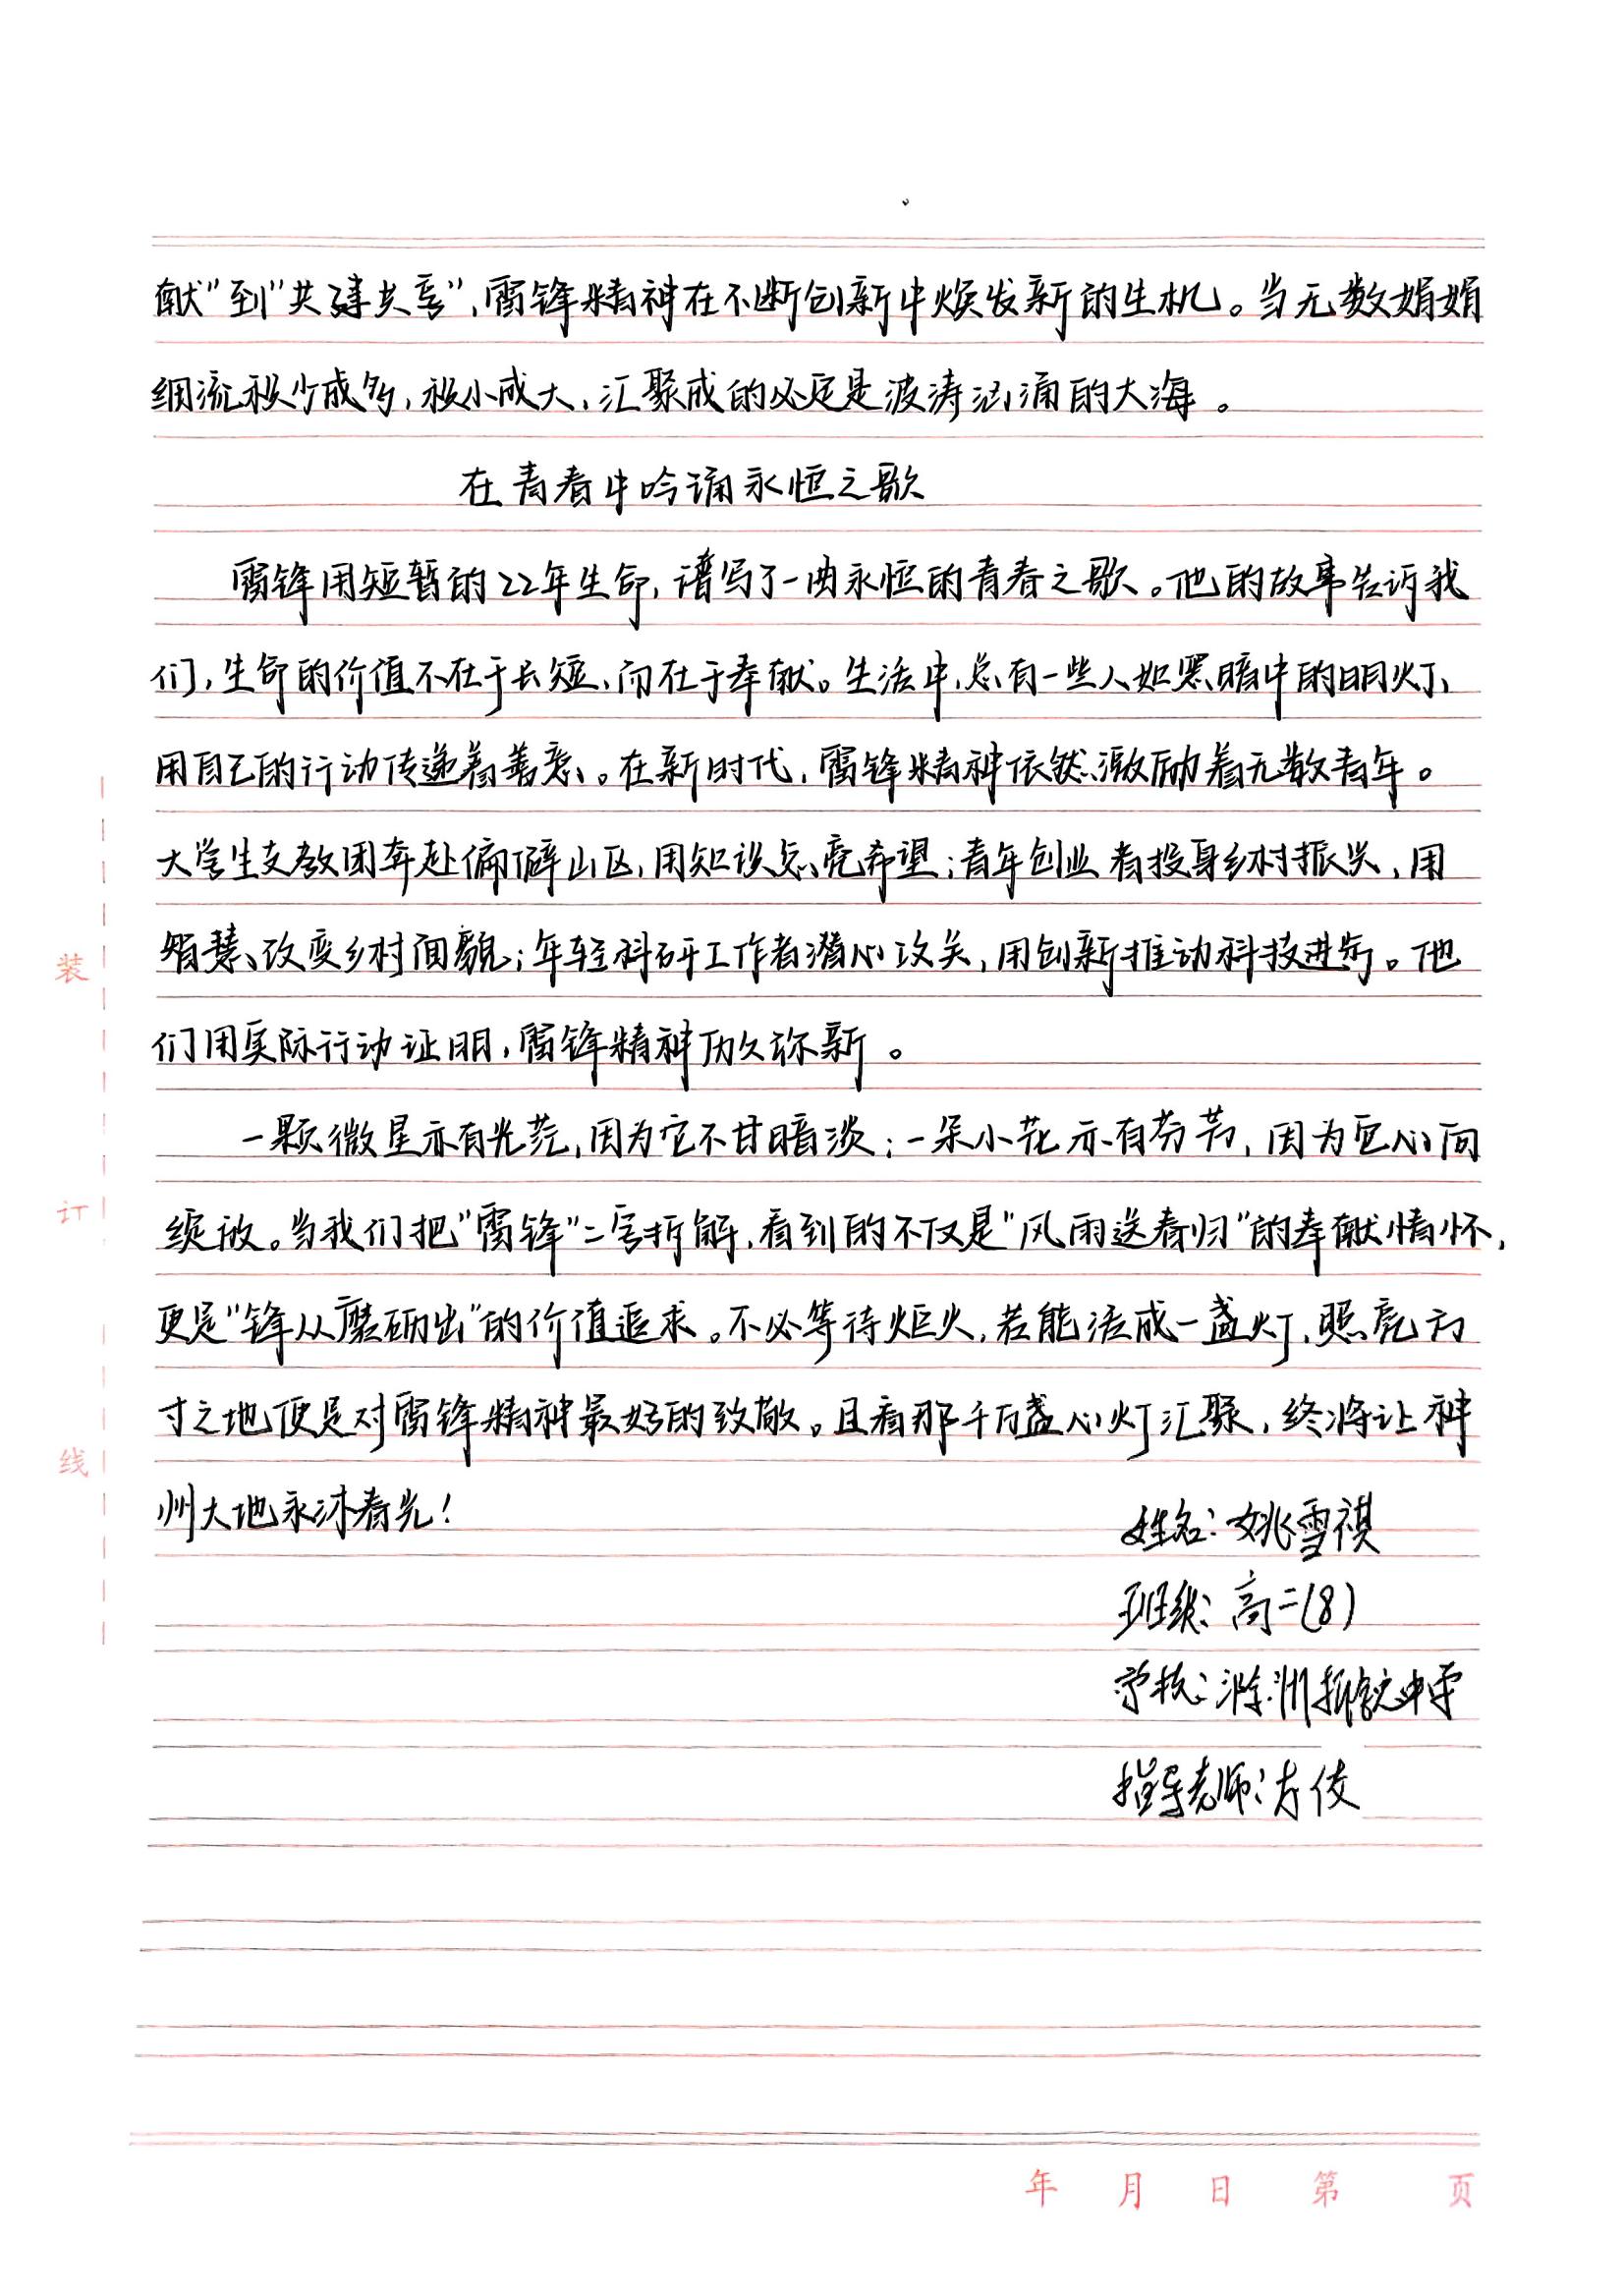 献”到“共建共享”，雷锋精神在不断创新中焕发新的生机。当无数娟娟
细流积少成多，积小成大，汇聚成的必定是波涛汹涌的大海。
在青春中吟诵永恒之歌
雷锋用短暂的22年生命，谱写了一曲永恒的青春之歌。他的故事告诉我
们，生命的价值不在于长短，而在于奉献。生活中，总有一些人如黑暗中的明灯、
用自己的行动传递着善意。在新时代，雷锋精神依然激励着无数青年。
大学生支教团奔赴偏僻山区，用知识点亮希望；青年创业者投身乡村振兴，用
智慧改变乡村面貌；年轻科研工作者潜心攻关，用创新推动科技进步。他
们用实际行动证明，雷锋精神历久弥新。
一颗微星亦有光芒，因为它不甘暗淡；一朵小花亦有芬芳，因为它心向
绽放。当我们把“雷锋”二字拆解，看到的不仅是“风雨送春归”的奉献情怀，
更是“锋从磨砺出”的价值追求。不必等待炬火，若能活成一盏灯，照亮方
寸之地便是对雷锋精神最好的致敬。且看那千万盏心灯汇聚，终将让神
州大地永沐春光！
姓名：姚雪祺
班级：高二（8）
学校：滁州中学
指导老师：方俊
装
订
线
年 月 日 第 页